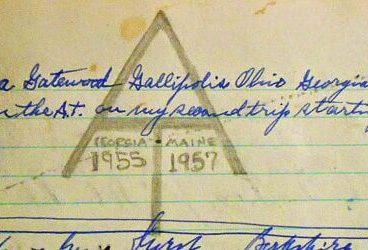 a Gatewood Gallipolis Ohio Georgia
the A.T. on my second trip starti
GEORGIA · MAINE
1955 1957
Berkshire